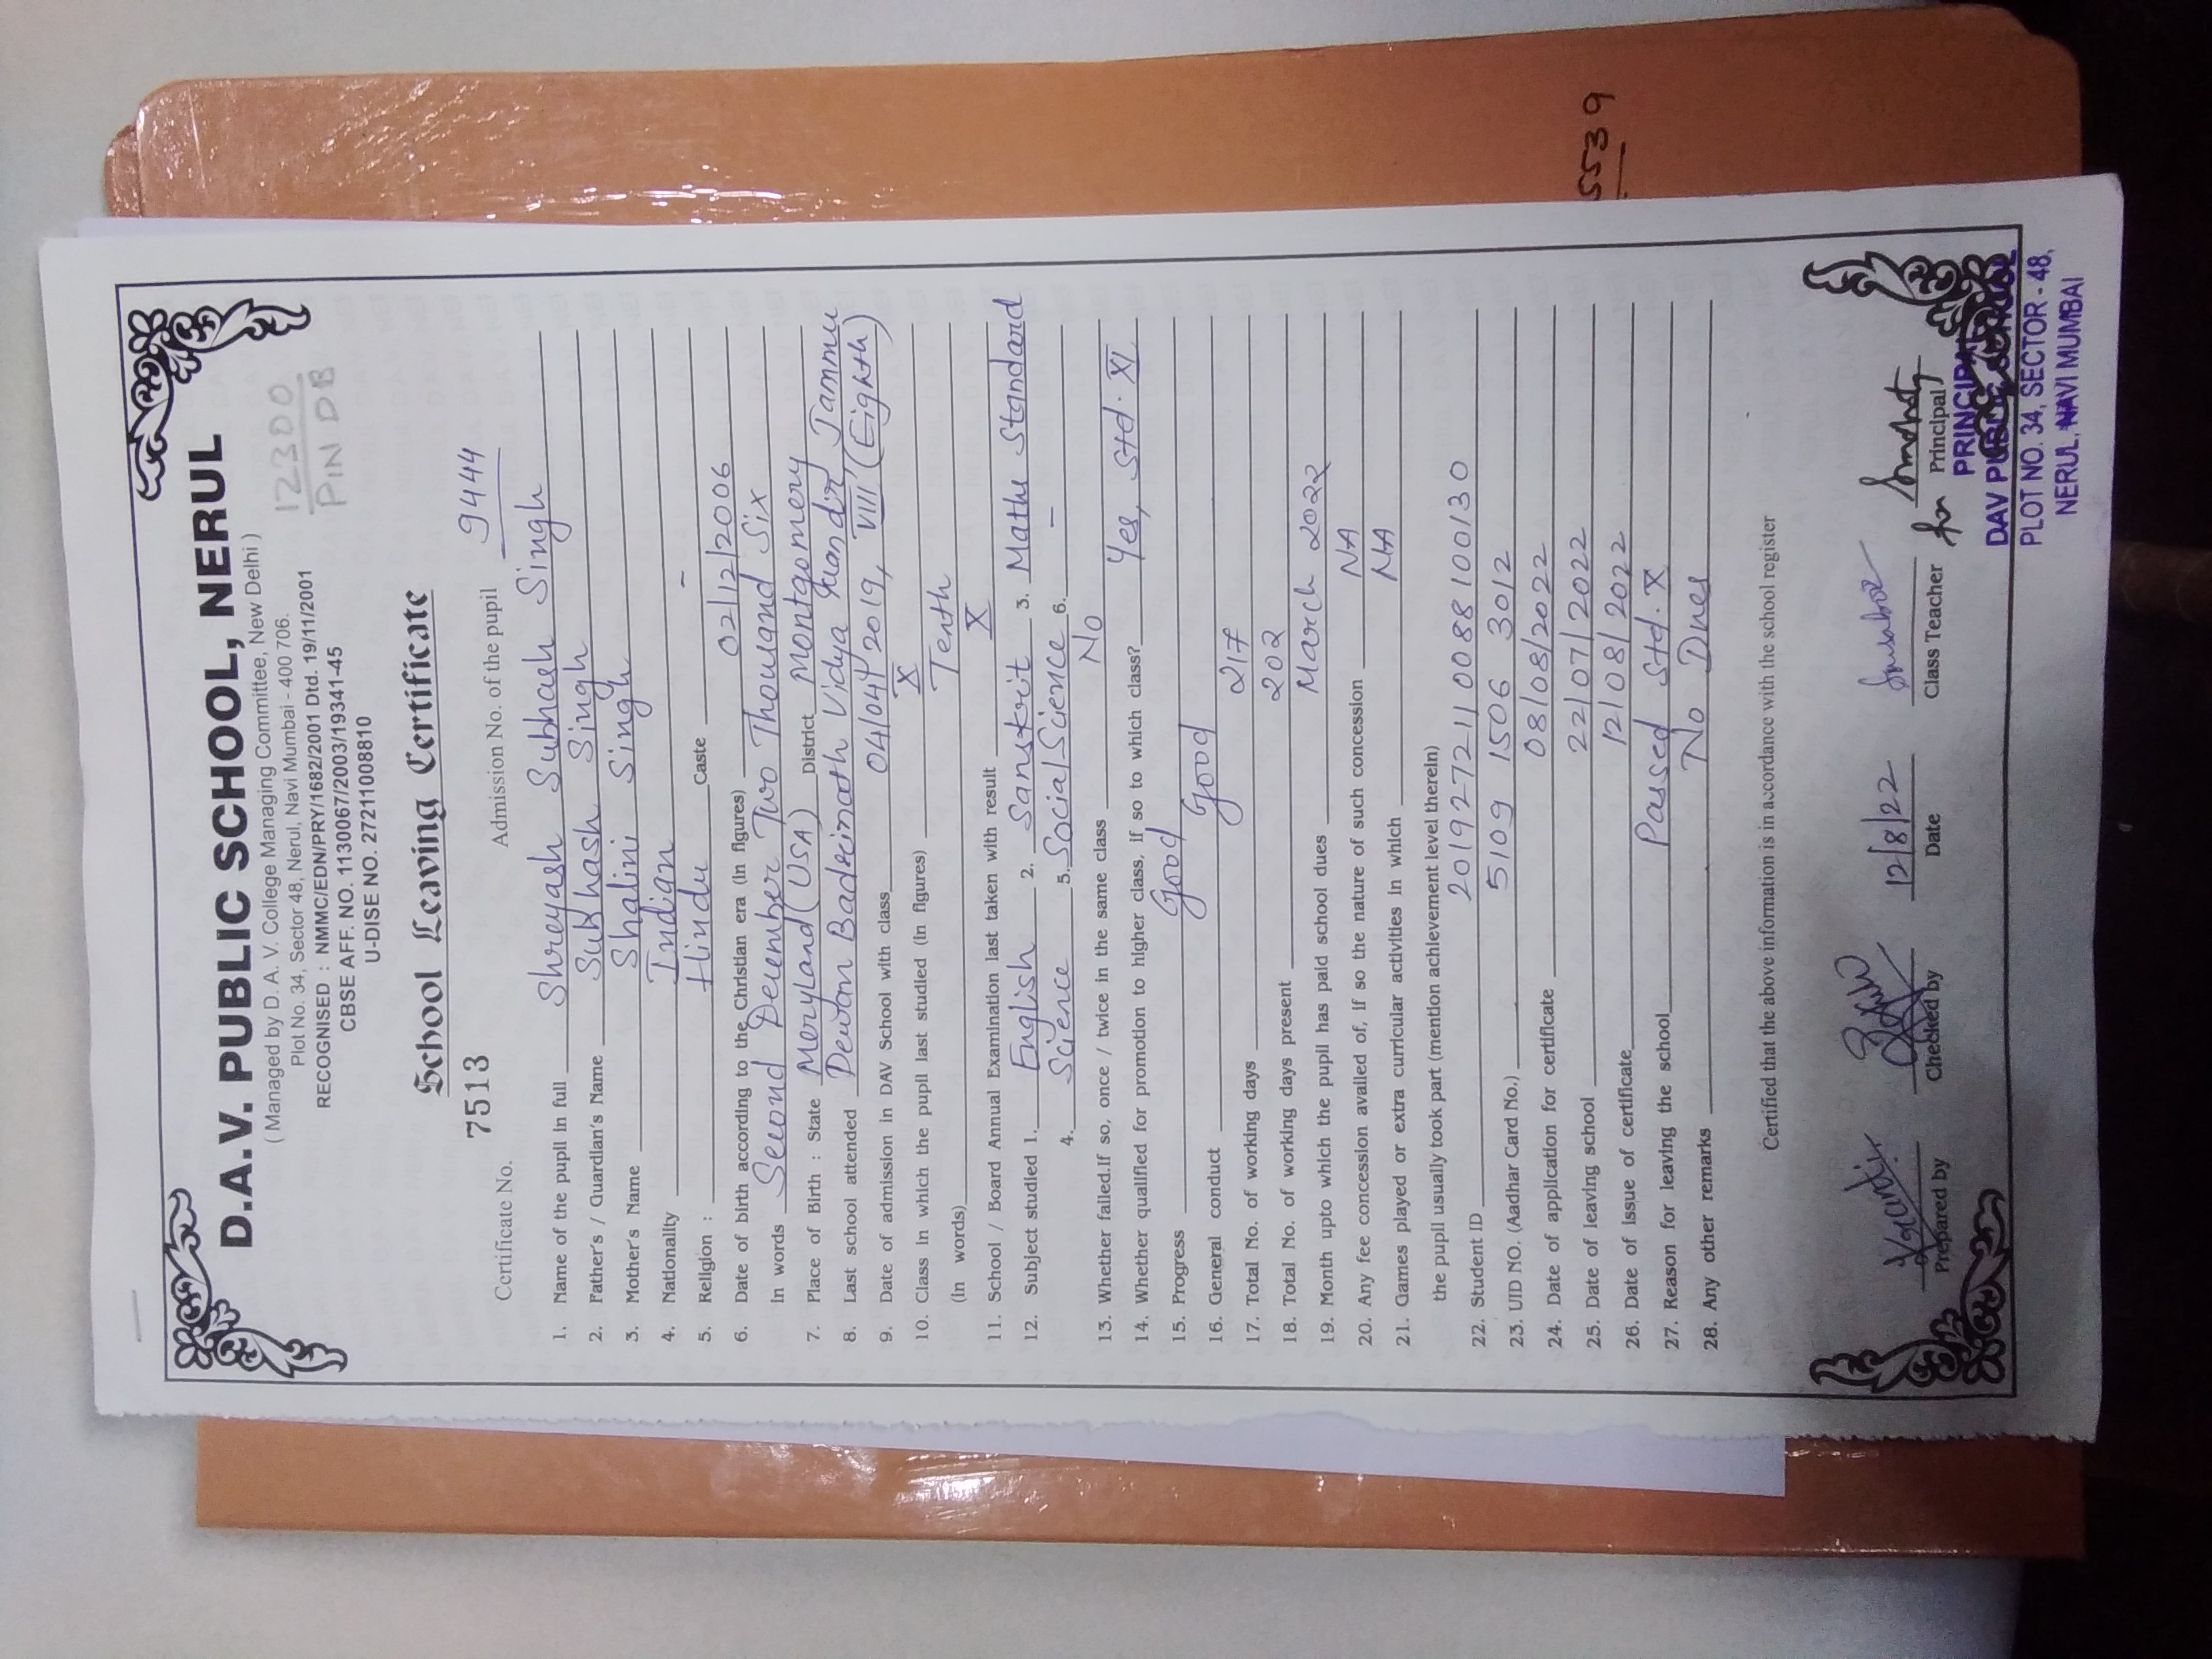 D.A.V. PUBLIC SCHOOL, NERUL
( Managed by D. A. V. College Managing Committee, New Delhi )
Plot No. 34, Sector 48, Nerul, Navi Mumbai - 400 706.
RECOGNISED : NMMC/EDN/PRY/1682/2001 Dtd. 19/11/2001
CBSE AFF. NO. 1130067/2003/19341-45
U-DISE NO. 27211008810
12300
PIN DB
School Leaving Certificate
Certificate No. 7513 Admission No. of the pupil 9444
1. Name of the pupil in full Shreyash Subhash Singh
2. Father's / Guardian's Name Subhash Singh
3. Mother's Name Shalini Singh
4. Nationality Indian
5. Religion : Hindu Caste -
6. Date of birth according to the Christian era (In figures) 02/12/2006
In words Second December Two Thousand Six
7. Place of Birth : State Meryland (USA) District Montgomery
8. Last school attended Dewan Badrinath Vidya Mandir Jammu
9. Date of admission in DAV School with class 04/04/2019, VIII (Eighth)
10. Class in which the pupil last studied (In figures) X
(In words) Tenth
11. School / Board Annual Examination last taken with result X
12. Subject studied 1. English 2. Sanskrit 3. Maths Standard
4. Science 5. Social Science 6. -
13. Whether failed.If so, once / twice in the same class No
14. Whether qualified for promotion to higher class, If so to which class? Yes, Std. XI
15. Progress Good
16. General conduct Good
17. Total No. of working days 217
18. Total No. of working days present 202
19. Month upto which the pupil has paid school dues March 2022
20. Any fee concession availed of, If so the nature of such concession NA
21. Games played or extra curricular activities in which NA
the pupil usually took part (mention achievement level therein)
22. Student ID 2019272110088100130
23. UID NO. (Aadhar Card No.) 5109 1506 3012
24. Date of application for certificate 08/08/2022
25. Date of leaving school 22/07/2022
26. Date of issue of certificate 12/08/2022
27. Reason for leaving the school Passed Std. X
28. Any other remarks No Dues
Certified that the above information is in accordance with the school register
12/8/22
for
Prepared by Checked by Date Class Teacher Principal
PRINCIPAL
DAV PUBLIC SCHOOL
PLOT NO. 34, SECTOR - 48,
NERUL, NAVI MUMBAI
5539